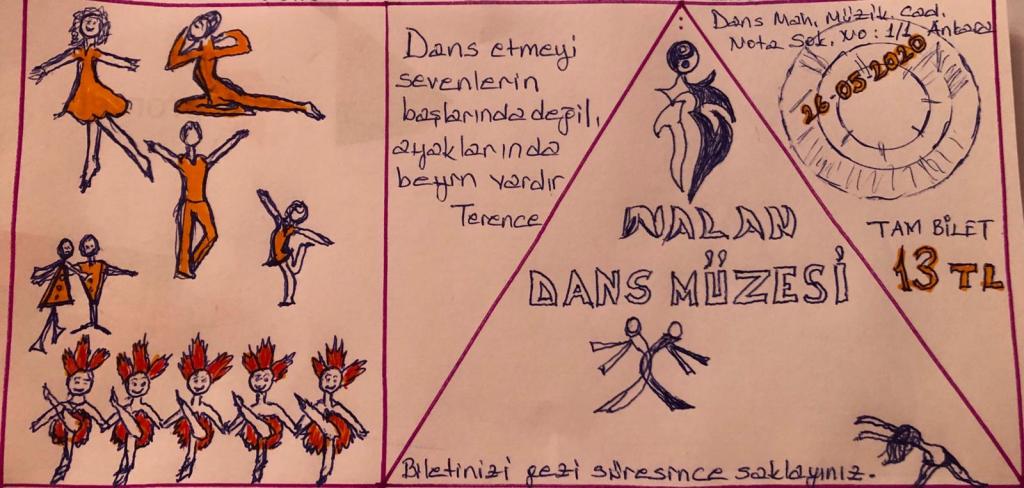 Dans etmeyi
sevenlerin
başlarında değil,
ayaklarında
beyin vardır
Terence
NALAN
DANS MÜZESİ
Dans Mah. Müzik. Cad.
Nota Sok. No: 1/1 Ankara
26.05.2020
TAM BİLET
13 TL
Biletinizi gezi süresince saklayınız.